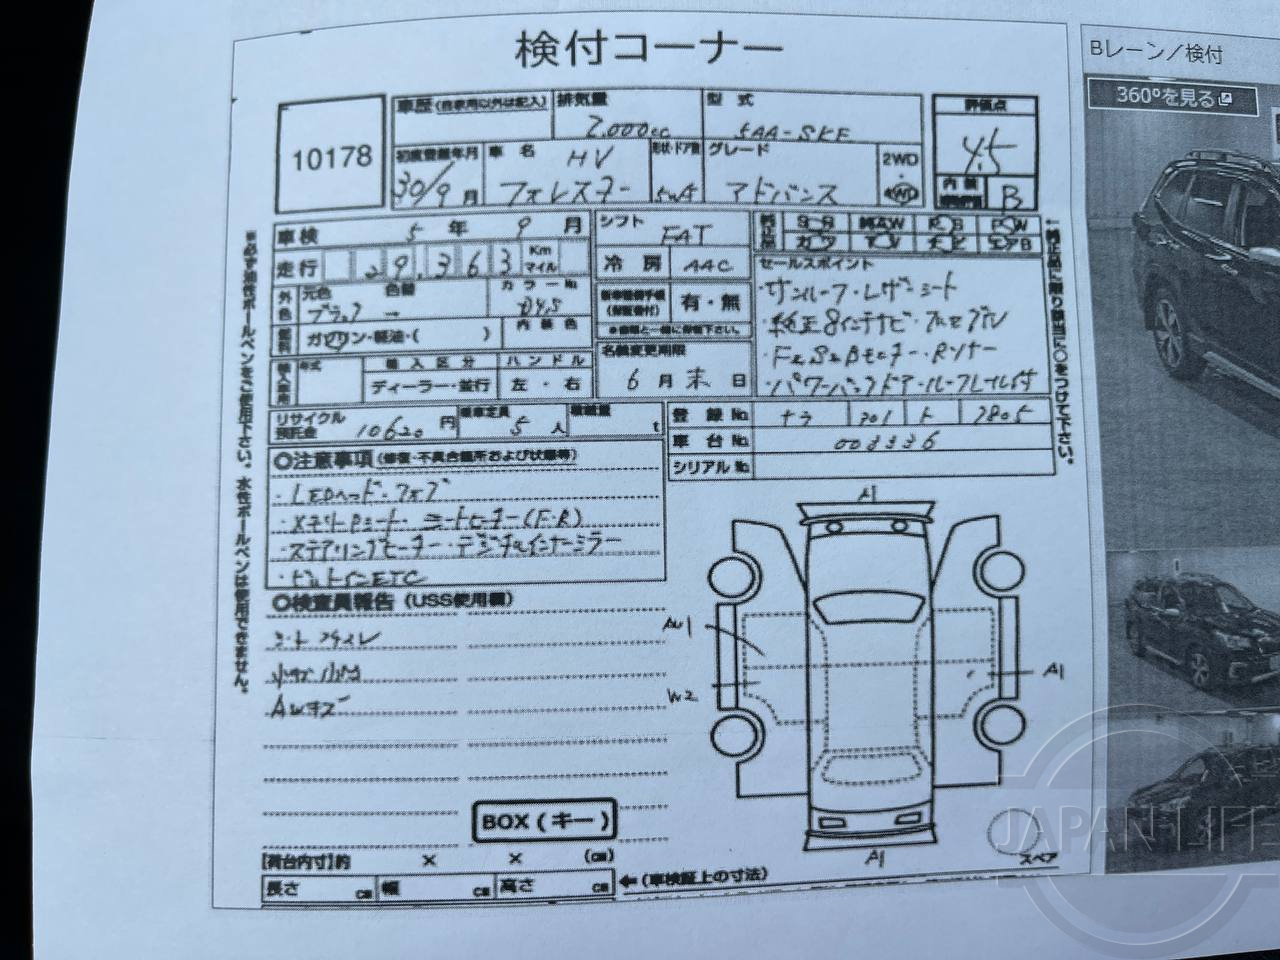 検付コーナー
Bレーン／検付
360°を見る
10178
車歴(自家用以外は記入)
排気量
2.000cc
型式
5AA-SKE
評価点
4.5
初度登録年月
30/9月
車名
HV
フォレスター
形状・ドア数
5W
グレード
アドバンス
2WD
・
4WD
内装
B
車検 5年 9月
走行 29,363 Km マイル
シフト
FAT
冷房
AAC
純正品
SR AAW PS PW
カワ TV ナビ エアB
セールスポイント
・サンルーフ・レザーシート
・純正8インチナビ・フルセグTV
・F&S&Bモニター・Rソナー
・パワーバックドア・ルーフレール付
外色
元色
ブラック
色替
カラーNo
D4S
燃料
ガソリン・軽油・( )
内装色
有・無
※書類と一緒に保管下さい。
名義変更期限
6月末日
年式
輸入区分
ディーラー・並行
ハンドル
左・右
リサイクル預託金
10620円
乗車定員
5人
積載量
t
登録No.
ナラ 301 ト 7805
車台No.
003336
シリアルNo.
○注意事項(修復・不具合箇所および状態等)
・LEDヘッド・フォグ
・メモリーPシート・シートヒーター(F・R)
・ステアリングヒーター・デジタルインナーミラー
・ビルトインETC
○検査員報告(USS使用欄)
シートスレ
小キズ小凹
AWキズ
※必ず油性ボールペンをご使用下さい。水性ボールペンは使用できません。
↑純正品に限り該当に○をつけて下さい。
A1
AU1
W2
A1
A1
スペア
BOX(キー)
[荷台内寸]約 × × (cm)
長さ cm 幅 cm 高さ cm
←(車検証上の寸法)
JAPAN LIFE